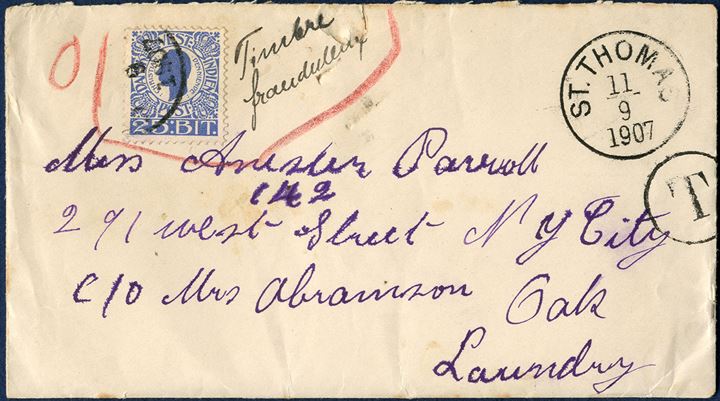 Timbre
frauduleux
01
25 BIT
ST. THOMAS
11
9
1907
T
Miss Anester Parroll
142
291 West Street N Y City
c/o Mrs Abramson Oak
Laundry